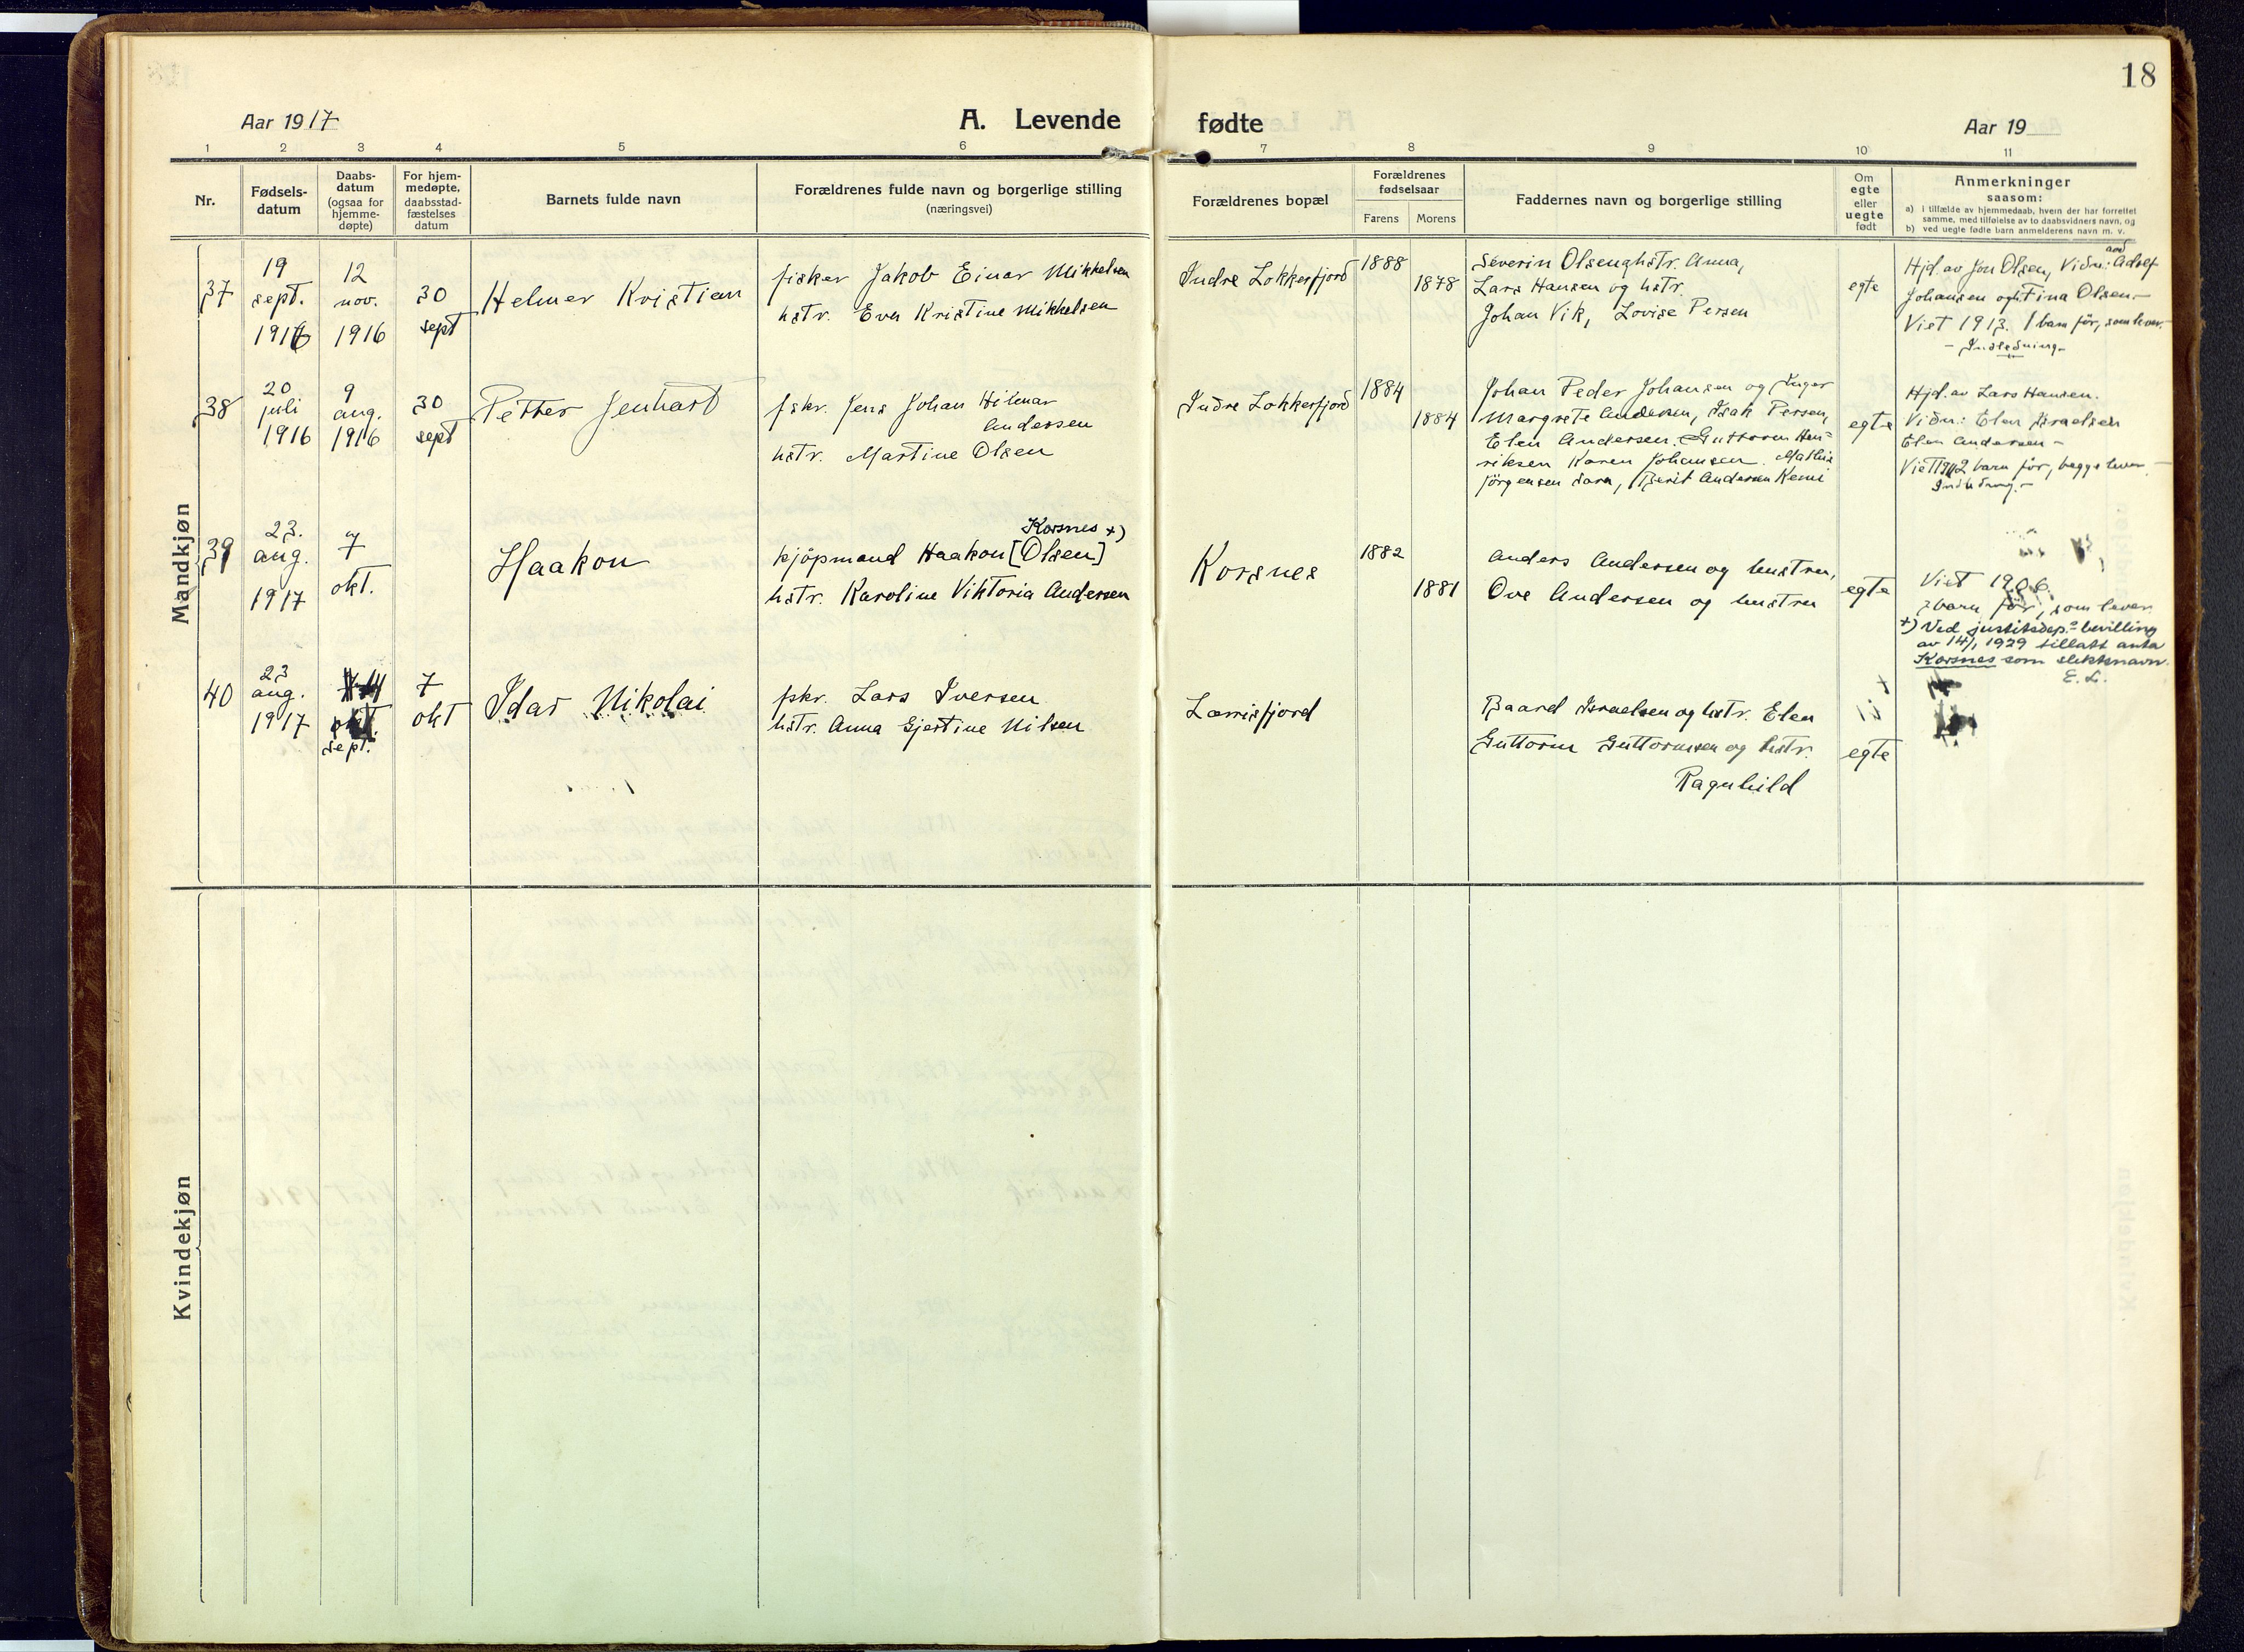 18
Aar 1917
A. Levende
fødte
Aar 19
1 2 3 4 5 6 7 8 9 10 11
Nr.
Fødsels-
datum
Daabs-
datum
(ogsaa for
hjemme-
døpte)
For hjem-
medøpte,
daabsstad-
fæstelses
datum
Barnets fulde navn
Forældrenes fulde navn og borgerlige stilling
(næringsvei)
Forældrenes bopæl
Forældrenes
fødselsaar
Farens Morens
Faddernes navn og borgerlige stilling
Om
egte
eller
uegte
født
Anmerkninger
saasom:
a) i tilfælde av hjemmedaab, hvem der har forrettet
samme, med tilføielse av to daabsvidners navn, og
b) ved uegte fødte barn anmelderens navn m. v.
Mandkjøn
37
19
sept.
1916
12
nov.
1916
30
sept
Helmer Kristian
fisker Jakob Einar Mikkelsen
hstr. Eva Kristine Mikkelsen
Indre Lokkerfjord
1888
1878
Severin Olsen og hstr. Anna,
Lars Hansen og hstr.
Johan Vik, Lovise Persen
egte
Hjd. av Jon Olsen, Vidn: Adolf
Johansen og Fina Olsen.-
Viet 1913. 1 barn før, som lever.
- Indledning -
38
20
juli
1916
9
aug.
1916
30
sept
Petter Jenhart
fskr. Jens Johan Hilmar
Andersen
hstr. Martine Olsen
Indre Lokkerfjord
1884
1884
Johan Peder Johansen og Inger
Margrete Andersen, Isak Persen,
Elen Andersen. Guttorm Hen-
riksen Karen Johansen. Mathis
Jørgensen Sara, Berit Andersen Kemi
egte
Hjd. av Lars Hansen.
Vidn: Elen Israelsen
Elen Andersen -
barn før, begge lever -
39
23.
aug.
1917
7
okt.
Haakon
Korsnes +)
kjøpmand Haakon [Olsen]
hstr. Karoline Viktoria Andersen
Korsnes
1882
1881
Anders Andersen og hustru,
Ove Andersen og hustru
egte
Viet 1906.
barn før, som lever
+) Ved justitsdep.s bevilling
av 14/1 1929 tillatt anta
Korsnes som slektsnavn.
E. L.
40
23
aug.
1917
sept.
7
okt
Idar Nikolai
fskr. Lars Iversen
hstr. Anna Gjertine Nilsen
Lærrisfjord
Baard Israelsen og hstr. Elen
Guttorm Guttormsen og hstr.
Ragnhild
egte
Kvindekjøn